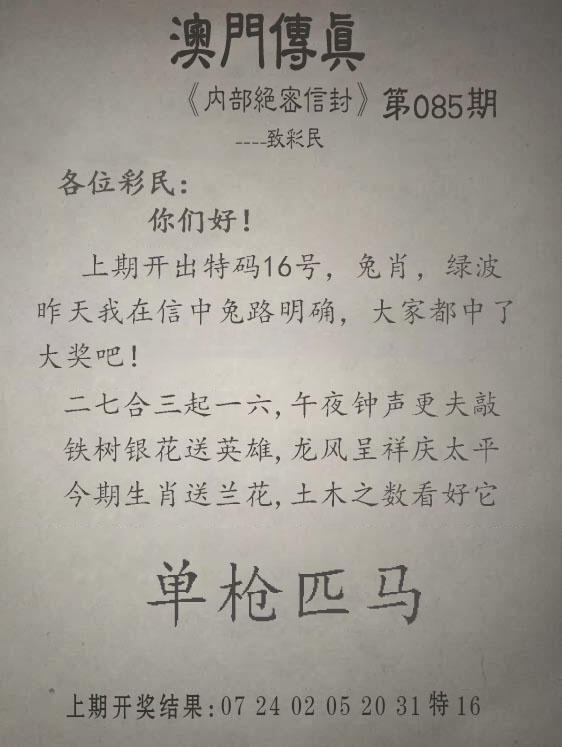 澳門傳真
《内部絕密信封》第085期
----致彩民
各位彩民：
你们好！
上期开出特码16号，兔肖，绿波
昨天我在信中兔路明确，大家都中了
大奖吧！
二七合三起一六,午夜钟声更夫敲
铁树银花送英雄,龙风呈祥庆太平
今期生肖送兰花,土木之数看好它
单枪匹马
上期开奖结果:07 24 02 05 20 31 特 16